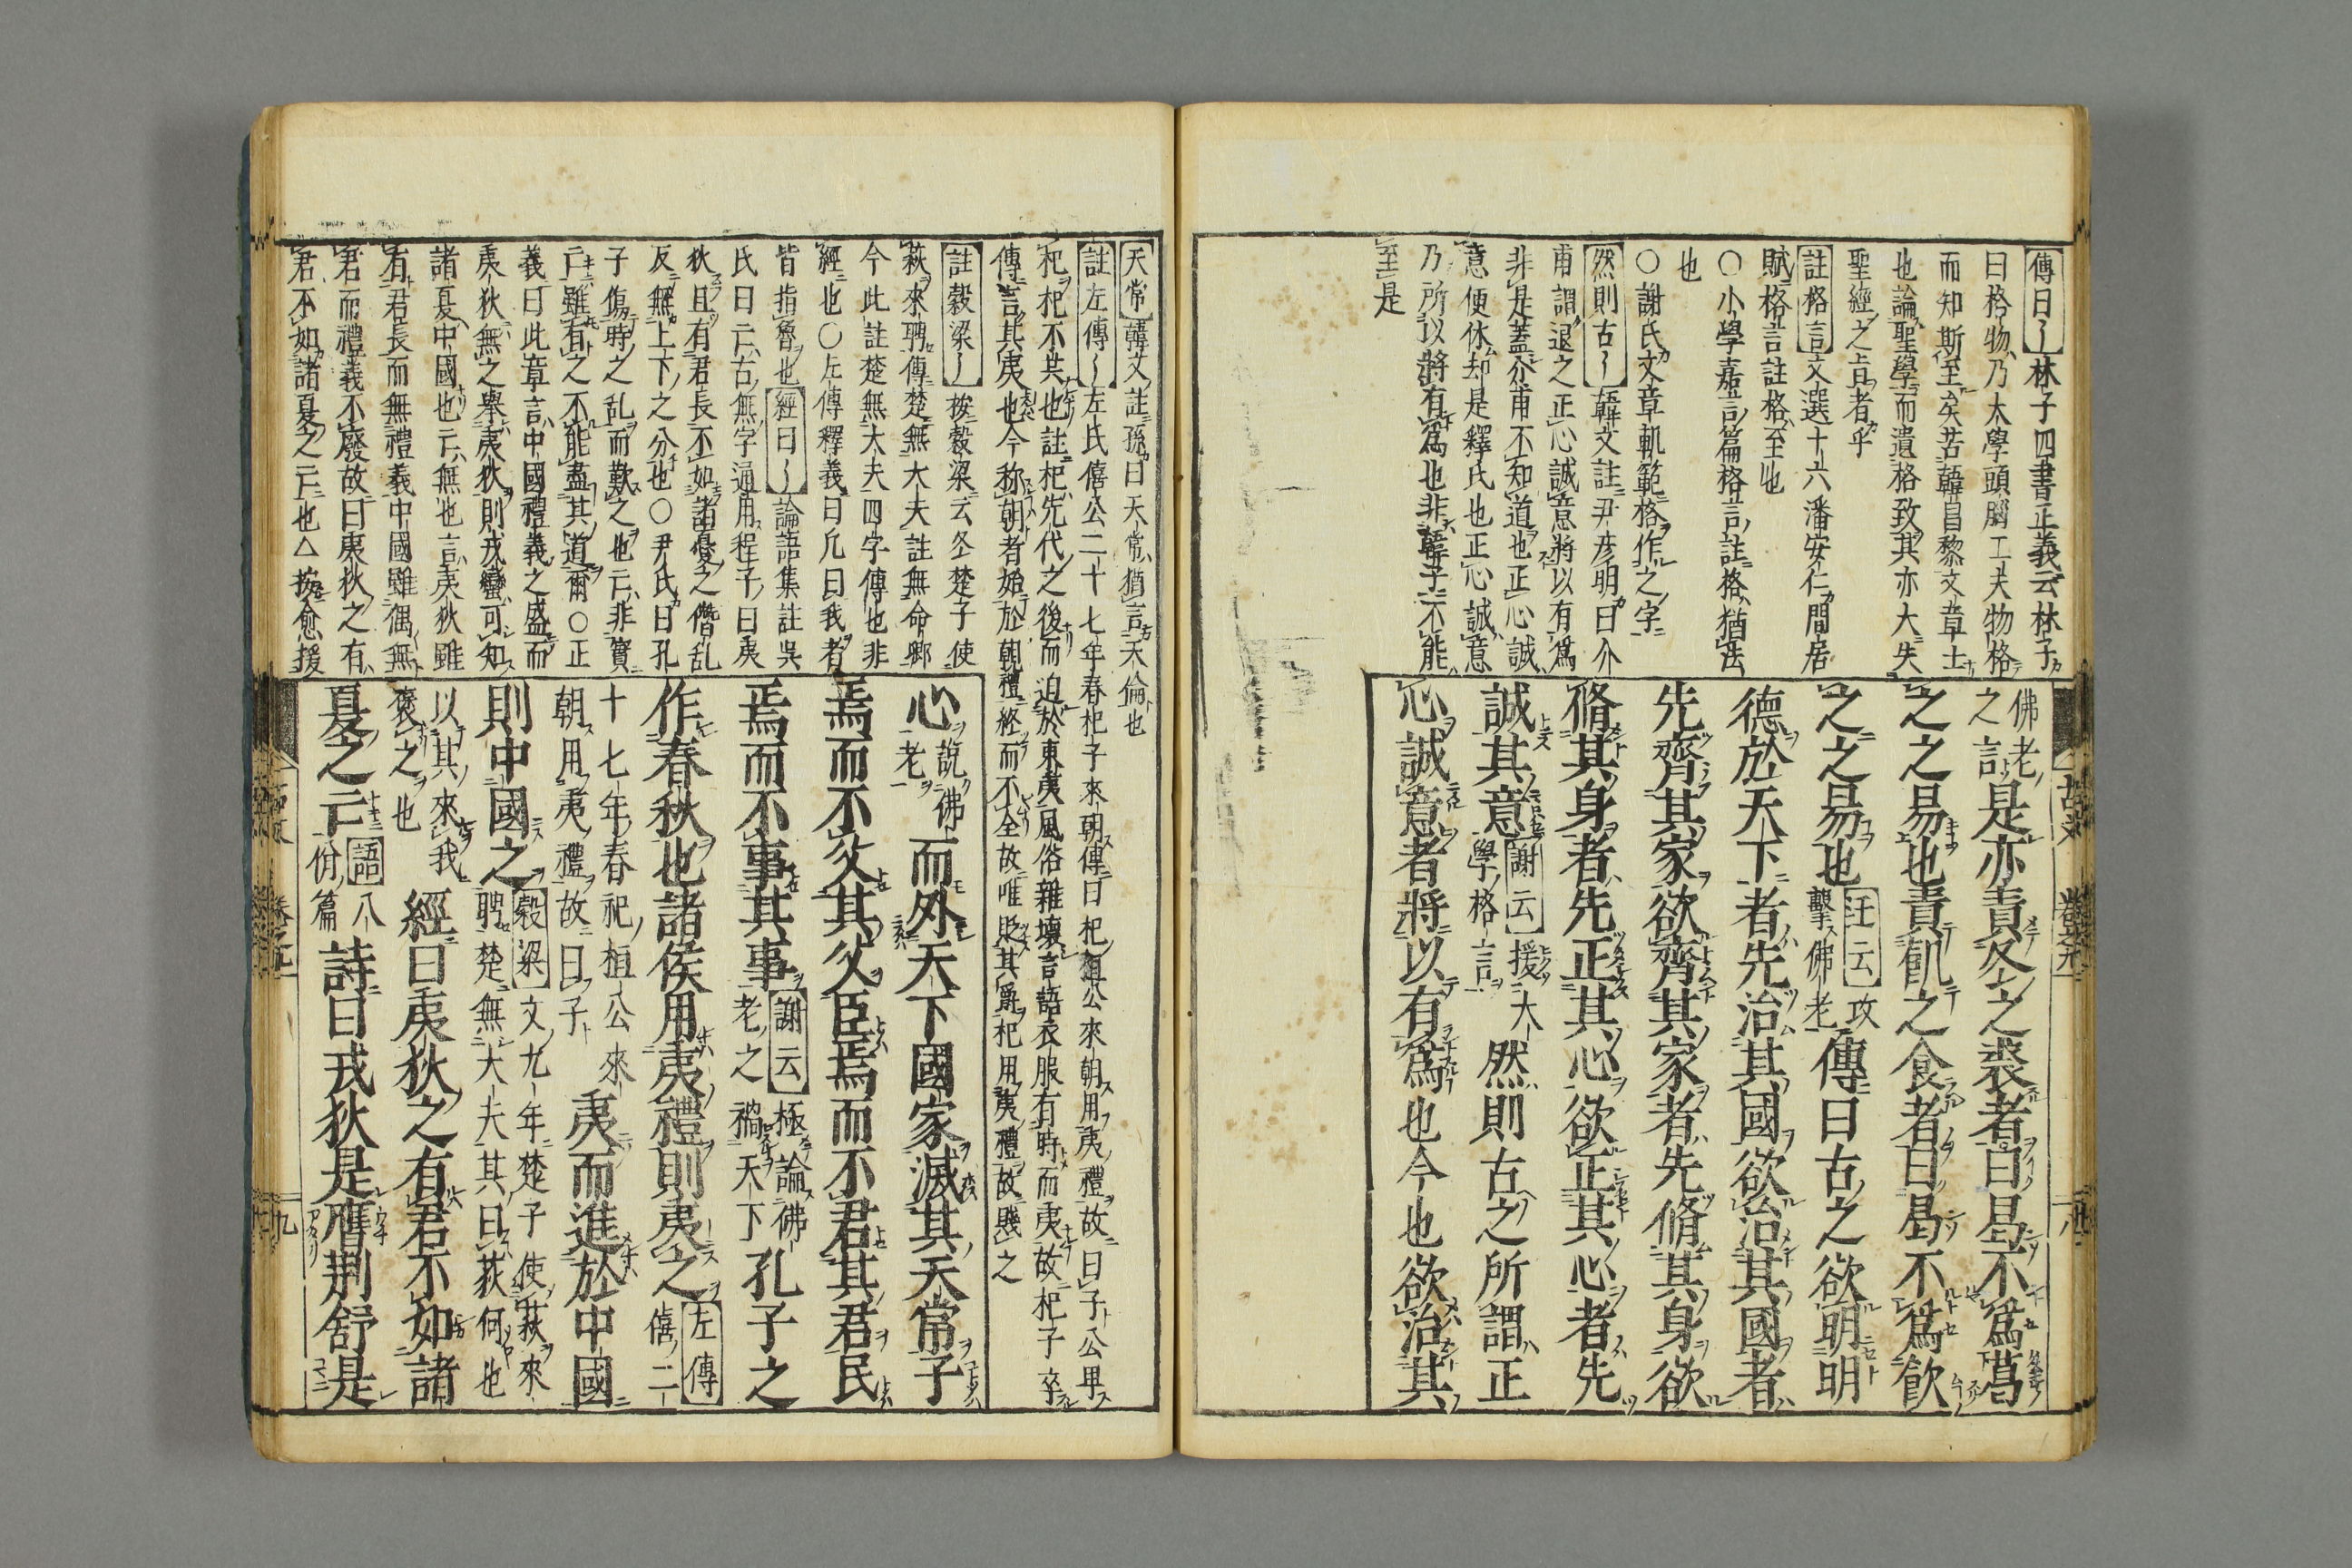 傳曰〻林子四書正義云林子
曰格物乃大學頭腦工夫物格
而知斯至矣苦韓昌黎文章士
也論聖學而遺格致其亦大失
聖經之旨者乎
註格言文選十六潘安仁間居
賦格言註格至也
〇小學嘉言篇格言註格猶法
也
〇謝氏文章軌範格作之字
然則古〻韓文註尹彦明曰介
甫謂退之正心誠意將以有爲
非是蓋介甫不知道也正心誠
意便休却是釋氏也正心誠意
乃所以將有爲也非韓子不能
至是
佛老
之言
是亦責冬之裘者曰曷不爲葛
之之易也責飢之食者曰曷不爲飮
之之易也
汪云攻
擊佛老
傳曰古之欲明明
德於天下者先治其國欲治其國者
先齊其家欲齊其家者先脩其身欲
脩其身者先正其心欲正其心者先
誠其意
謝云援大
學格言
然則古之所謂正
心誠意者將以有爲也今也欲治其
天常韓文註孫曰天常猶言天倫也
註左傳〻左氏僖公二十七年春杞子來朝傳曰杞桓公來朝用夷禮故曰子公卑
杞杞不共也註杞先代之後而迫於東夷風俗雜壞言語衣服有時而夷故杞子卒
傳言其夷也今称朝者始於朝禮終而不全故唯貶其爵杞用夷禮故賤之
註穀梁〻按穀梁云冬楚子使
萩來聘傳楚無大夫註無命卿
今此註楚無大夫四字傳也非
經也〇左傳釋義曰凡曰我者
皆指魯也經曰〻論語集註吳
氏曰亡古無字通用程子曰夷
狄且有君長不如諸夏之僭乱
反無上下之分也〇尹氏曰孔
子傷時之乱而歎之也亡非實
亡雖有之不能盡其道爾〇正
義曰此章言中國禮義之盛而
夷狄無之舉夷狄則戎蠻可知
諸夏中國也亡無也言夷狄雖
有君長而無禮義中國雖偶無
君而禮義不廢故曰夷狄之有
君不如諸夏之亡也△按愈援
心
說佛
老
而外天下國家滅其天常子
焉而不父其父臣焉而不君其君民
焉而不事其事
謝云極論佛
老之禍天下
孔子之
作春秋也諸侯用夷禮則夷之
左傳
僖二
十七年春杞桓公來
朝用夷禮故曰子
夷而進於中國
則中國之
穀梁文九年楚子使萩來
聘楚無大夫其曰萩何也
以其來我
襃之也
經曰夷狄之有君不如諸
夏之亡
語八
佾篇
詩曰戎狄是膺荆舒是
九